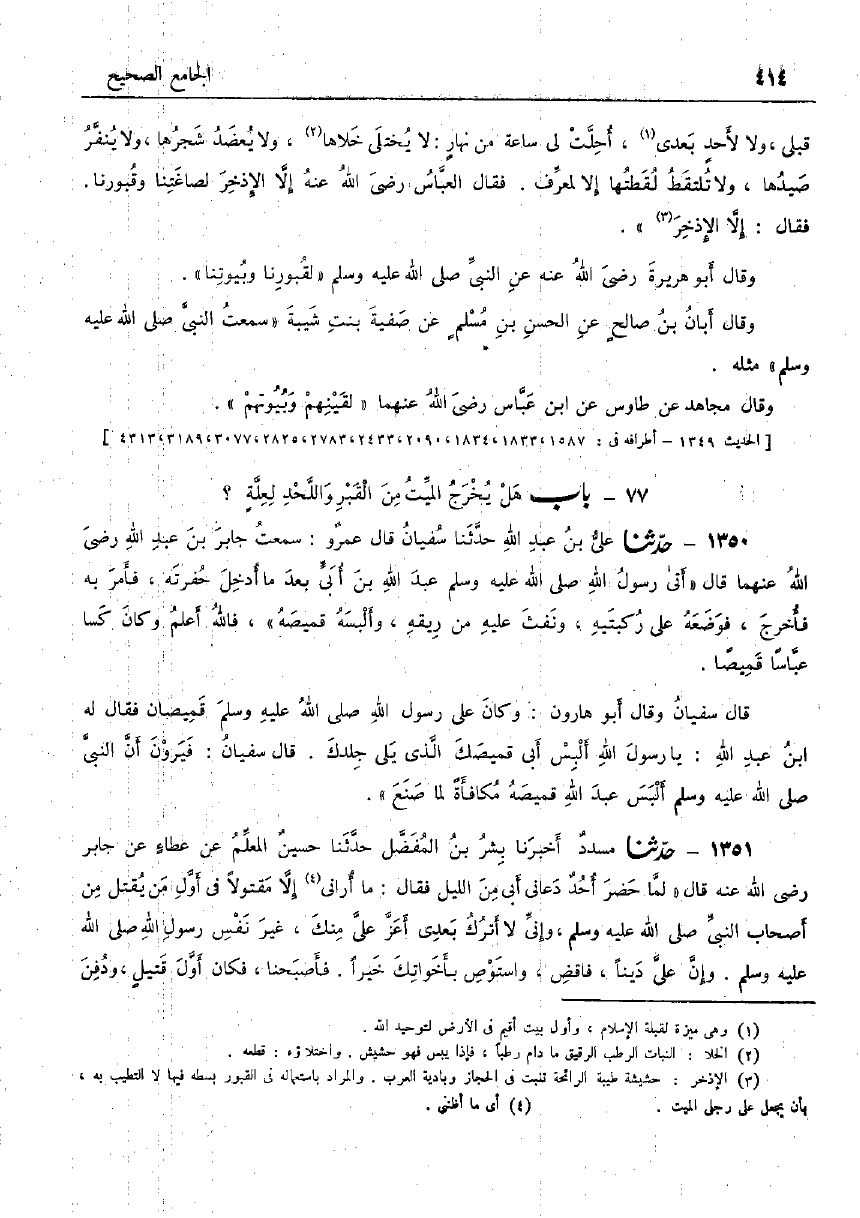 ٤١٤ الجامع الصحيح
قبلى ، ولا لأَحدٍ بَعدى(١) ، أُحِلَّتْ لى ساعة من نهارٍ : لا يُختلَى خَلاها(٢) ، ولا يُعضَدُ شَجرُها ، ولا يُنفَّرُ
صَيدُها ، ولا تُلتقَطُ لُقَطتُها إلا لمعرِّف . فقال العبَّاسُ رضىَ اللهُ عنهُ إلَّا الإذخِرَ لصاغَتِنا وقُبورنا .
فقال : إلَّا الإذخِرَ(٣) » .
وقال أَبو هريرةَ رضىَ اللهُ عنه عنِ النبىِّ صلى الله عليه وسلم « لقُبورِنا وبُيوتِنا » .
وقال أَبانُ بنُ صالحٍ عنِ الحسنِ بنِ مُسْلمٍ عن صَفيةَ بنتِ شَيبةَ « سمعتُ النبىَّ صلى الله عليه
وسلم » مثله .
وقال مجاهد عن طاوس عن ابن عَبَّاس رضىَ اللهُ عنهما « لقَيْنِهِمْ وَبُيُوتهِمْ » .
[ الحديث ١٣٤٩ – أطرافه فى : ١٥٨٧ ، ١٨٣٣ ، ١٨٣٤ ، ٢٠٩٠ ، ٢٤٣٣ ، ٢٧٨٣ ، ٢٨٢٥ ، ٣٠٧٧ ، ٣١٨٩ ، ٤٣١٣ ]
٧٧ – باب هَلْ يُخْرَجُ الميِّتُ مِنَ الْقَبْرِ وَاللَّحْدِ لِعِلَّةٍ ؟
١٣٥٠ – حدّثنا علىُّ بنُ عبدِ اللهِ حدَّثَنا سُفيانُ قال عمرٌو : سمعتُ جابرَ بنَ عبدِ اللهِ رضىَ
اللهُ عنهما قال « أَتىٰ رسولُ اللهِ صلى الله عليه وسلم عبدَ اللهِ بنَ أُبَىٍّ بعدَ ما أُدخِلَ حُفرتَه ، فأَمرَ به
فأُخرجَ ، فوَضَعَهُ على رُكبتَيهِ ، ونَفثَ عليهِ من رِيقهِ ، وأَلْبسَهُ قميصَهُ » ، فاللهُ أَعلمُ وكانَ كَسا
عبَّاسًا قَمِيصًا .
قال سفيانُ وقال أَبو هارون : وكانَ على رسول اللهِ صلى اللهُ عليهِ وسلمَ قَميصان فقال له
ابنُ عبدِ اللهِ : يا رسولَ اللهِ أَلْبِسْ أَبى قميصَكَ الَّذى يَلى جِلدكَ . قال سفيانُ : فَيَروْنَ أَنَّ النبىَّ
صلى الله عليه وسلم أَلْبَسَ عبدَ اللهِ قميصَهُ مُكافأَةً لما صَنَعَ » .
١٣٥١ – حدّثنا مسددٌ أَخبرَنا بِشرُ بنُ المُفَضَّل حدَّثَنا حسينٌ المعلِّمُ عن عطاءٍ عن جابر
رضى الله عنه قال « لمَّا حَضرَ أُحُدٌ دَعانى أَبى مِنَ الليل فقال : ما أُرانى(٤) إلَّا مَقتولاً فى أَوَّلِ مَن يُقتل مِن
أَصحاب النبىِّ صلى الله عليه وسلم ، وإنِّى لا أَتركُ بَعدِى أَعَزَّ علىَّ مِنكَ ، غيرَ نَفْسِ رسولِ اللهِ صلى الله
عليه وسلم . وإنَّ علىَّ دَيناً ، فاقضِ ، واستَوْصِ بأَخَواتِكَ خَيراً . فأَصبَحنا ، فكان أَوَّلَ قَتيلٍ ، ودُفِنَ
(١) وهى ميزة لقبلة الإسلام ، وأول بيت أقيم فى الأرض لتوحيد الله .
(٢) الخلا : النبات الرطب الرقيق ما دام رطباً ، فإذا يبس فهو حشيش . واختلاؤه : قطعه .
(٣) الإذخر : حشيشة طيبة الرائحة تنبت فى الحجاز وبادية العرب . والمراد باستعماله فى القبور بسطه فيها لا التطيب به ،
بأن يجعل على رجلى الميت . (٤) أى ما أظننى .